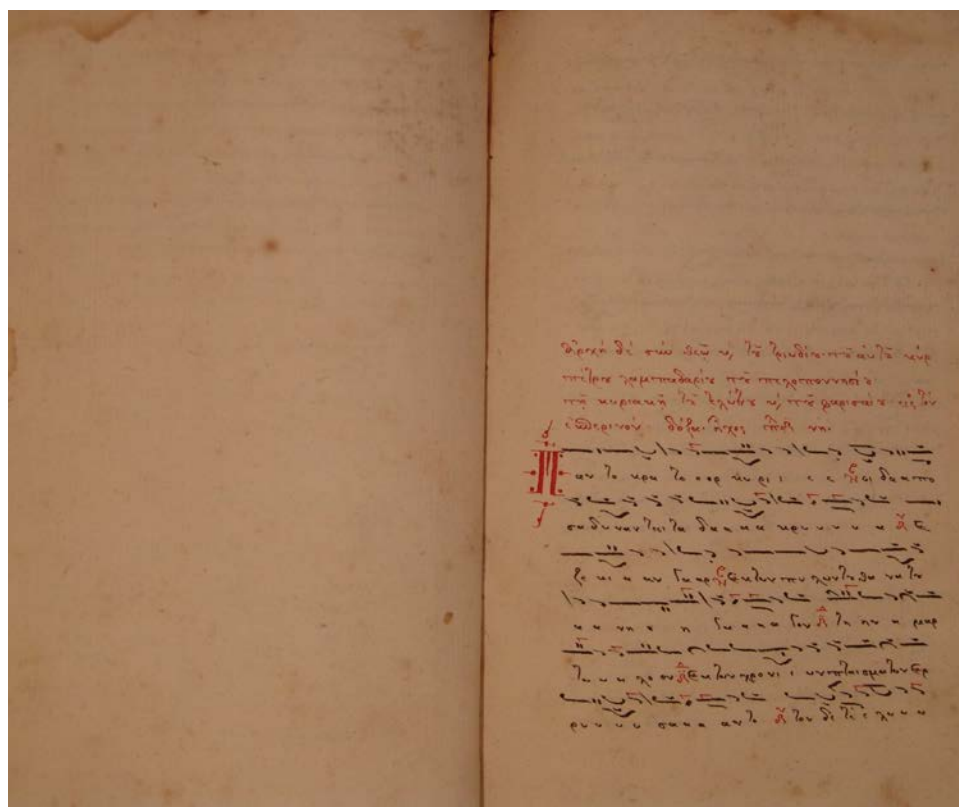 ἀρχὴ δὲ σὺν θεῷ κ, τοῦ τριωδίου τοῦ αὐτοῦ κὺρ
πέτρου λαμπαδαρίου τοῦ πελοποννησίου
τῇ κυριακῇ τοῦ τελώνου κ, τοῦ φαρισαίου εἰς τὸν
ἑσπερινόν. δόξα. ἦχος πλ δ νη.
Παν το κρα το ο ορ κυ ρι ι ε ε οι δα α πο
σα δυ ναν ται τα δα α κα α κρυ υ υ υ α Ε
ζε κι α αν γα αρ Εκ των πυ λων του θα να του
α α νη η η γα α α γον τη ην α μαρ
τω ω λο ον Εκ των χρο νι ι ων πται σμα των Ερ
ρυ υ υ υ σα α α αν το τον δε τε ε λω ω ω